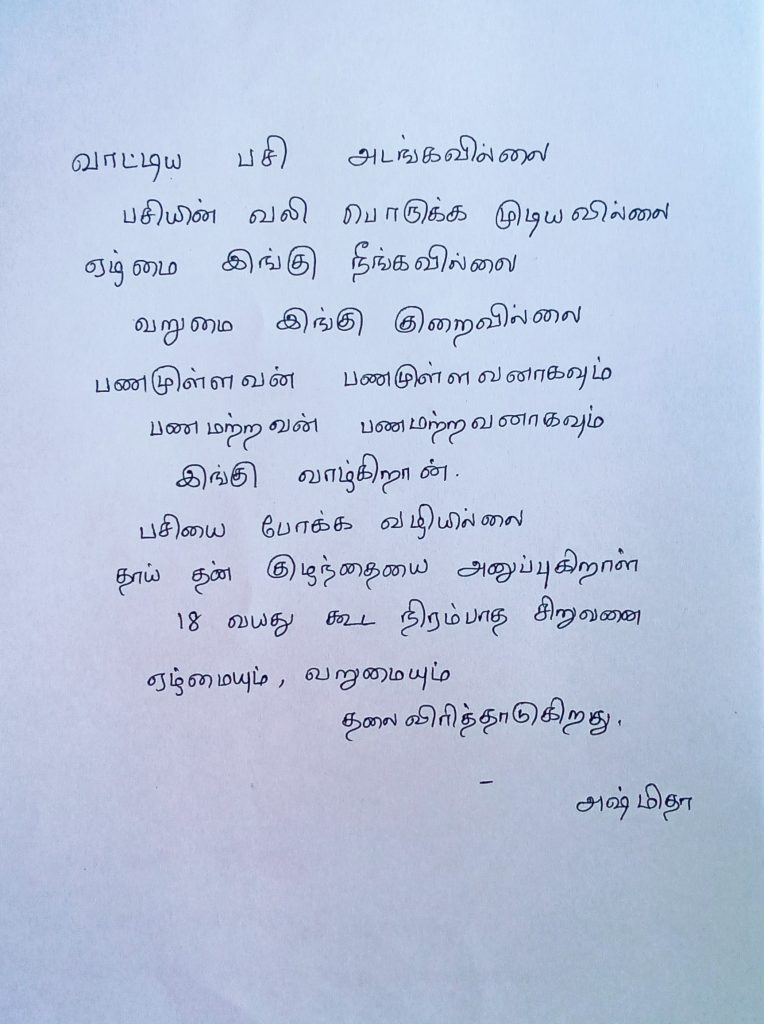 வாட்டிய பசி அடங்கவில்லை
பசியின் வலி பொடுக்க முடியவில்லை
ஏழ்மை இங்கு நீங்கவில்லை
வறுமை இங்கு குறைவில்லை
பணமுள்ளவன் பணமுள்ளவனாகவும்
பணமற்றவன் பணமற்றவனாகவும்
இங்கு வாழ்கிறான்.
பசியை போக்க வழியில்லை
தாய் தன் குழந்தையை அனுப்புகிறாள்
18 வயது கூட நிரம்பாத சிறுவனை
ஏழ்மையும், வறுமையும்
தலைவிரித்தாடுகிறது.
- அஷ்மிதா